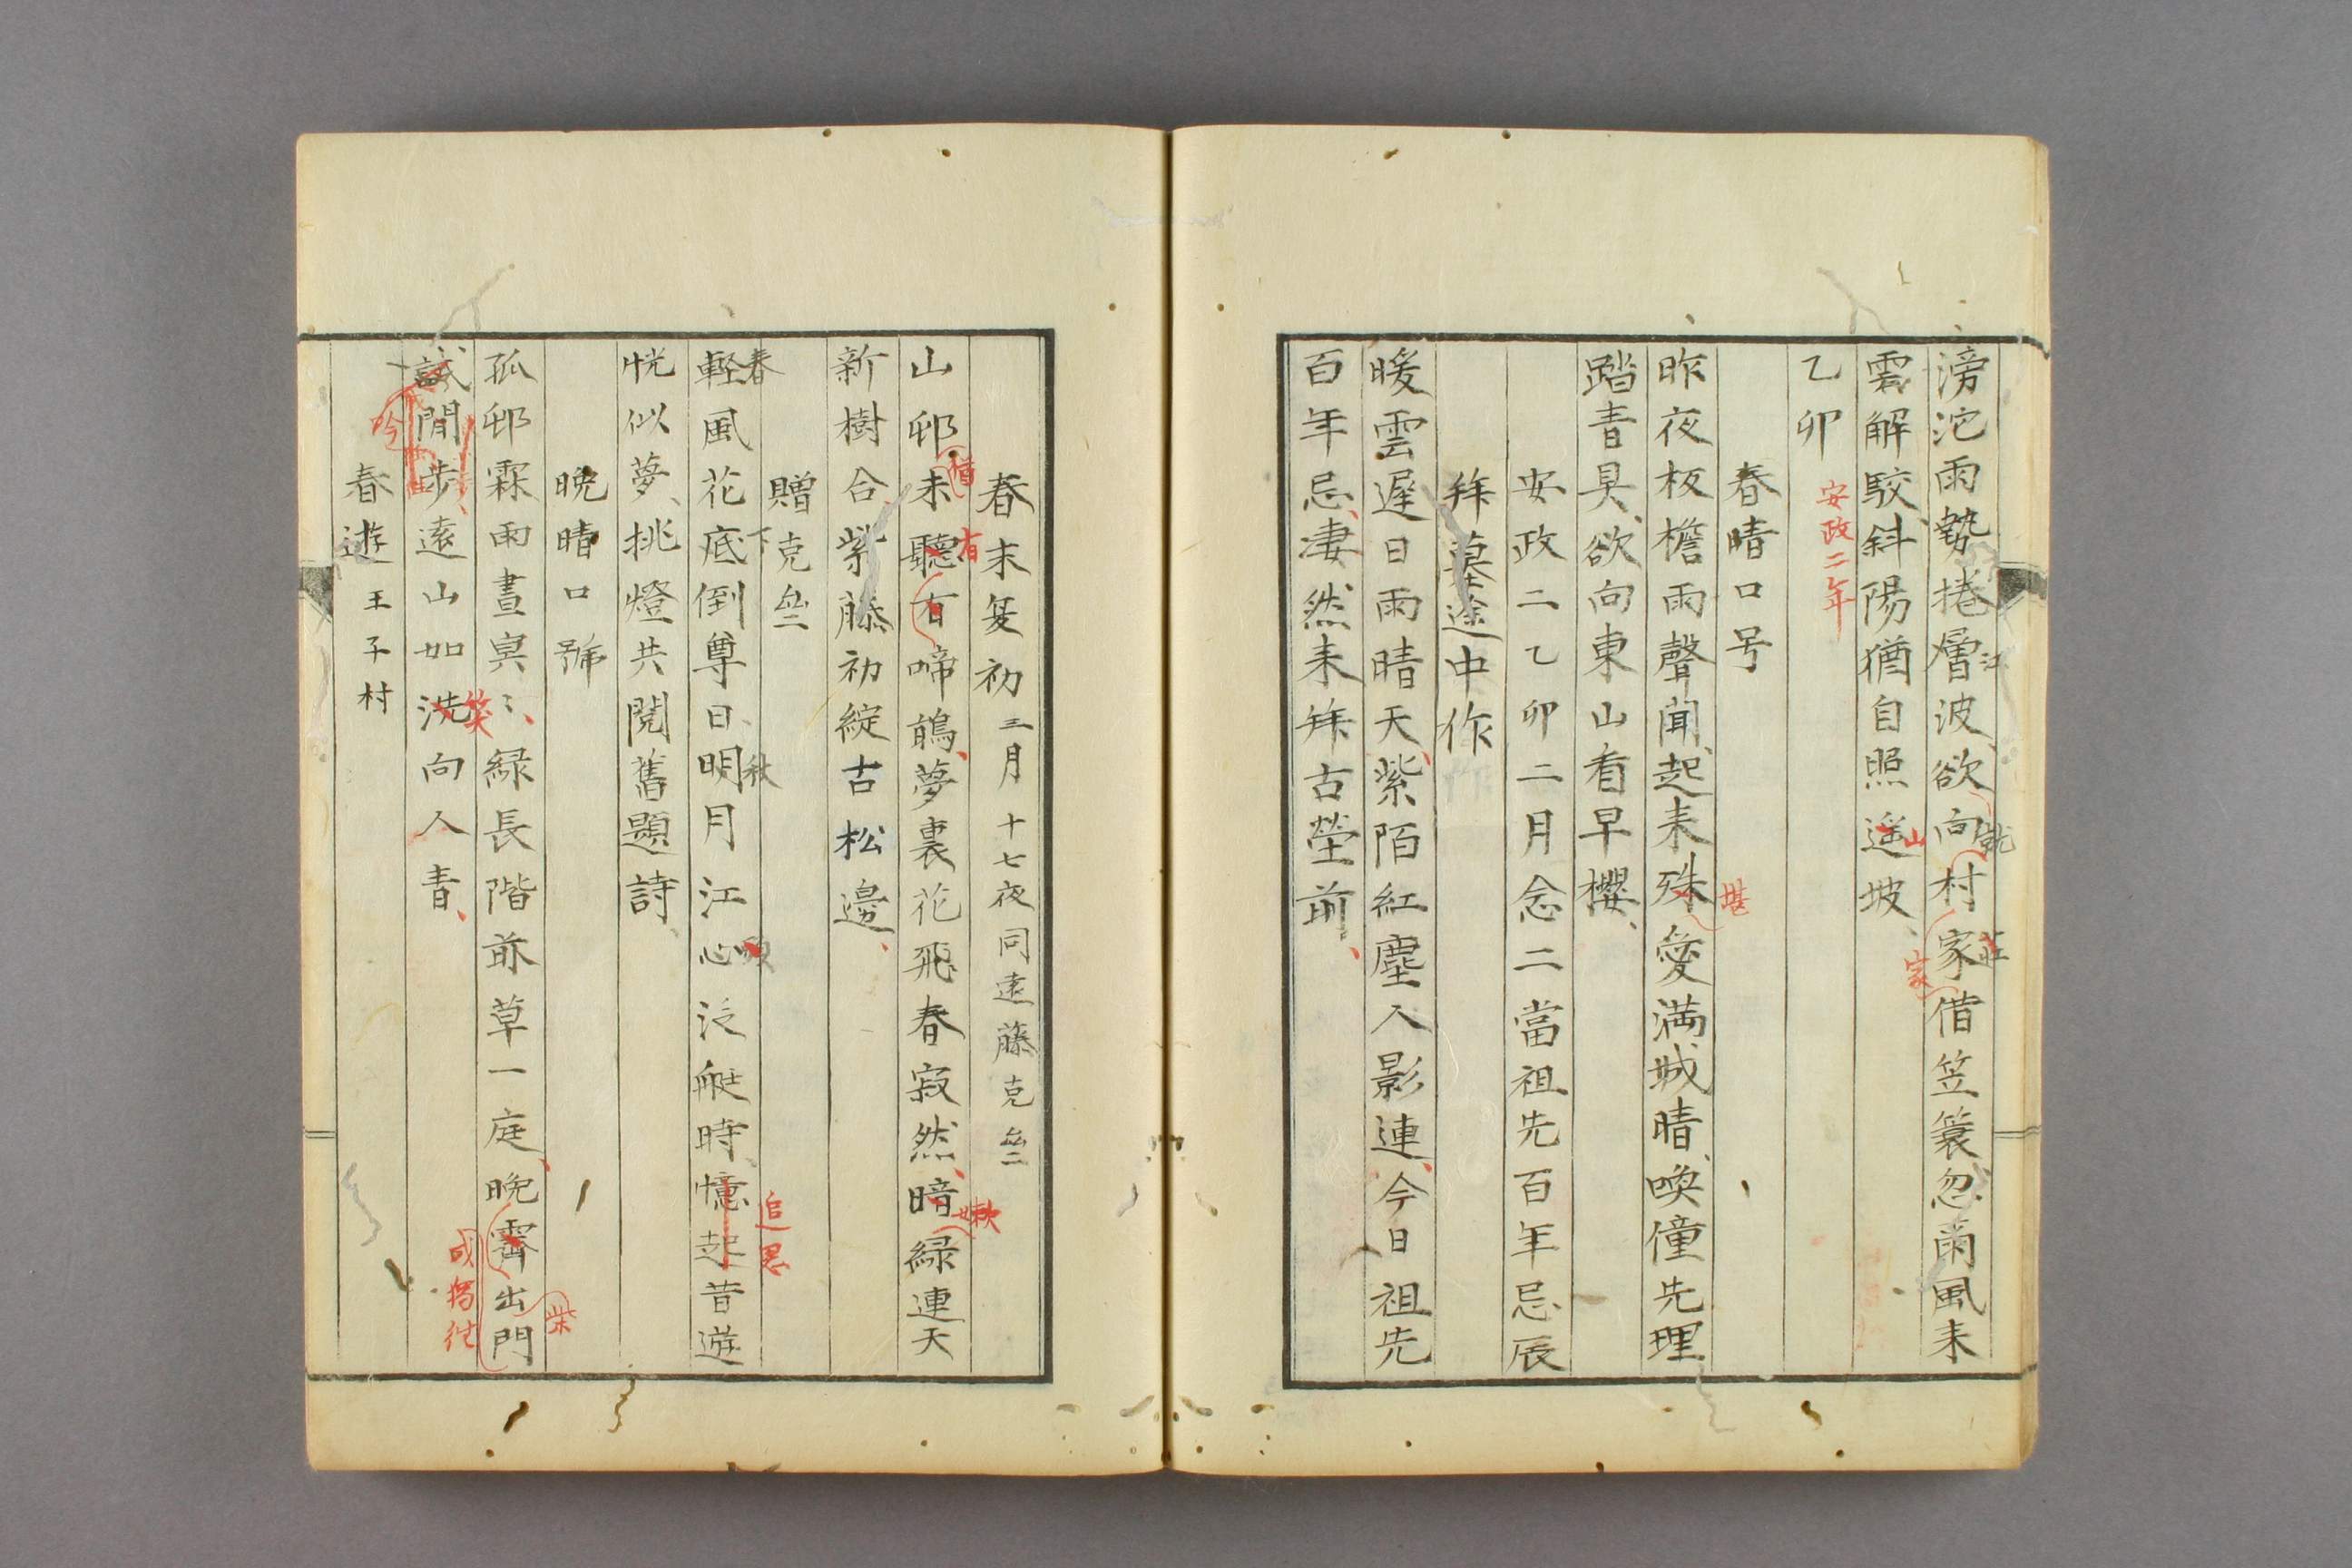 滂沱雨勢捲層波欲向村家借笠簑忽爾風来
江
就
莊
家
雲解駮斜陽猶自照遥坡
山
乙卯
安政二年
春晴口号
昨夜板檐雨聲聞起来殊愛満城晴喚僮先理
堪
踏青具欲向東山看早櫻
安政二乙卯二月念二當祖先百年忌辰
拜墓途中作
暖雲遲日雨晴天紫陌紅塵人影連今日祖先
百年忌凄然来拜古塋前
春末夏初三月十七夜同遠藤克
山邨未聽有啼鵑夢裏花飛春寂然暗綠連天
惜
有
嫩
新樹合紫藤初綻古松邊
贈克
輕風花底倒尊日明月江心泛艇時憶起昔遊
春
下
秋
追思
恍似夢挑燈共閲舊題詩
晩晴口號
孤邨霖雨晝冥〻緑長階前草一庭晩霽出門
柴
成獨往
試閒步遠山如洗向人青
笑
吟
春遊王子村